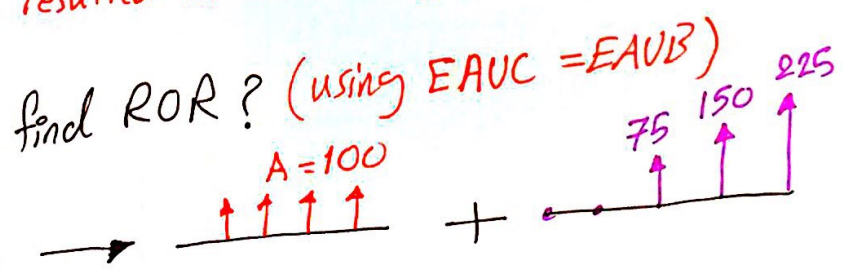 find ROR? (using EAUC =EAUB)
A=100
+
75 150 225